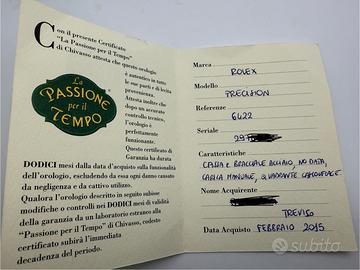 Con il presente Certificato
"La Passione per il Tempo"
di Chivasso attesta che questo orologio
è autentico in tutte
le sue parti e di lecita
provenienza.
Attesta inoltre che
dopo un accurato
controllo tecnico,
l'orologio è
perfettamente
funzionante.
Questo certificato di
Garanzia ha durata
LA
PASSIONE
per il
TEMPO
DODICI mesi dalla data d'acquisto sulla funzionalità
dell'orologio, escludendo da essa ogni danno causato
da negligenza e da cattivo utilizzo.
Qualora l'orologio descritto in seguito subisse
modifiche o controlli nei DODICI mesi di validità
della garanzia da un laboratorio estraneo alla
"Passione per il Tempo" di Chivasso, codesto
certificato subirà l'immediata
decadenza del periodo.
Marca
ROLEX
Modello
PRECISION
Referenze
6422
Seriale
29
Caratteristiche
CASSA E BRACCIALE ACCIAIO, NO DATA,
CARICA MANUALE, QUADRANTE
Nome Acquirente
TREVISO
Data Acquisto FEBBRAIO 2015
subito